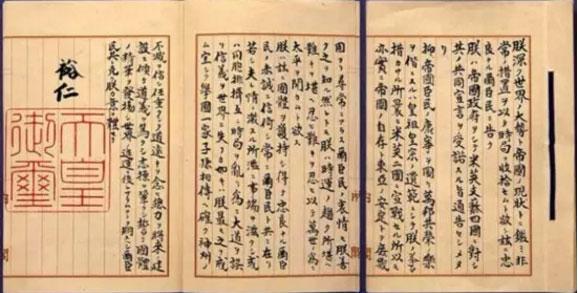 朕深ク世界ノ大勢ト帝國ノ現狀トニ鑑ミ非
常ノ措置ヲ以テ時局ヲ收拾セムト欲シ茲ニ忠
良ナル爾臣民ニ告ク
朕ハ帝國政府ヲシテ米英支蘇四國ニ對シ
其ノ共同宣言ヲ受諾スル旨通告セシメタ
リ
抑々帝國臣民ノ康寧ヲ圖リ萬邦共榮ノ樂
ヲ偕ニスルハ皇祖皇宗ノ遺範ニシテ朕ノ拳々
措カサル所曩ニ米英二國ニ宣戰セル所以モ
亦實ニ帝國ノ自存ト東亞ノ安定トヲ庶幾
固ヨリ尋常ニアラス爾臣民ノ衷情モ朕善
ク之ヲ知ル然レトモ朕ハ時運ノ趨ク所堪ヘ
難キヲ堪ヘ忍ヒ難キヲ忍ヒ以テ萬世ノ爲ニ
太平ヲ開カムト欲ス
朕ハ茲ニ國體ヲ護持シ得テ忠良ナル爾臣
民ノ赤誠ニ信倚シ常ニ爾臣民ト共ニ在リ
若シ夫レ情ノ激スル所濫ニ事端ヲ滋クシ或
ハ同胞排擠互ニ時局ヲ亂リ爲ニ大道ヲ誤
リ信義ヲ世界ニ失フカ如キハ朕最モ之ヲ戒
ム宜シク擧國一家子孫相傳ヘ確ク神州ノ
不滅ヲ信シ任重クシテ道遠キヲ念ヒ總力ヲ將來ノ建
設ニ傾ケ道義ヲ篤クシ志操ヲ鞏クシ誓テ國體
ノ精華ヲ發揚シ世界ノ進運ニ後レサラムコトヲ期スヘシ爾臣
民其レ克ク朕カ意ヲ體セヨ
裕仁
天皇
御璽